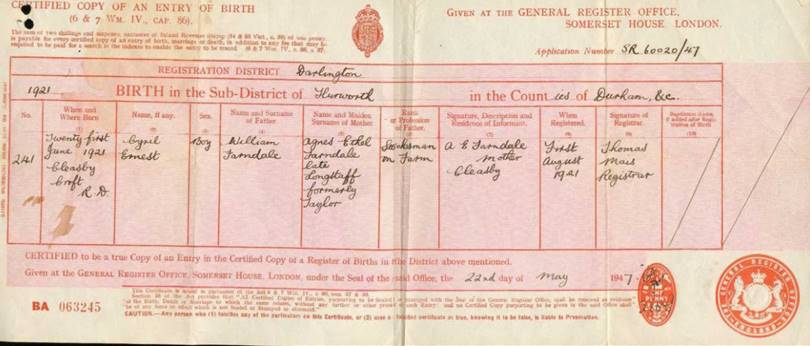 CERTIFIED COPY OF AN ENTRY OF BIRTH
(6 & 7 WM. IV., CAP. 86).
GIVEN AT THE GENERAL REGISTER OFFICE,
SOMERSET HOUSE, LONDON.
Application Number SR 60020/47
REGISTRATION DISTRICT Darlington
1921 BIRTH in the Sub-District of Hurworth in the Counties of Durham, &c.
No. When and Where Born Name, if any. Sex. Name and Surname of Father Name and Maiden Surname of Mother Rank or Profession of Father. Signature, Description and Residence of Informant. When Registered. Signature of Registrar
241
Twenty first
June 1921
Cleasby
Croft
R.D.
Cyril
Ernest
Boy
William
Farndale
Agnes Ethel
Farndale
late
Longstaff
formerly
Taylor
Stocksman
on Farm
A E Farndale
Mother
Cleasby
First
August
1921
Thomas
Mais
Registrar
CERTIFIED to be a true Copy of an Entry in the Certified Copy of a Register of Births in the District above mentioned.
Given at the GENERAL REGISTER OFFICE, SOMERSET HOUSE, LONDON, under the Seal of the said Office, the 22nd day of May 1947.
BA 063245
CAUTION.—Any person who (1) falsifies any of the particulars on this Certificate, or (2) uses a falsified certificate as true, knowing it to be false, is liable to Prosecution.
GENERAL REGISTER OFFICE
ENGLAND
PENNY